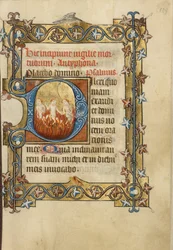 Hic incipiunt vigilie mor
tuorum. Antyphona.
Placebo domino. Psalmus
Dilexi quo
niam
exaudi
et domi
nus vo
cem ora
tionis
mee. Quia inclinavit au
rem suam michi et in diebus
meis invocabo.